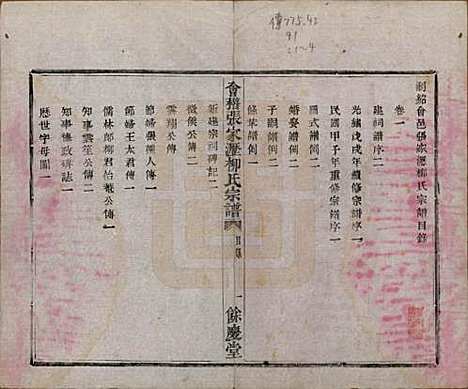 傳775.42
91
21-4
浙紹會邑張家漊柳氏宗譜目錄
卷一
建祠譜序二
光緒戊戌年續修宗譜序一
民國甲子年重修宗譜序一
圖式譜例二
婚娶譜例二
子嗣譜例二
條款譜例一
會稽張家漊柳氏宗譜
目錄
一
餘慶堂
新建宗祠碑記二
儀公傳二
雲翔公傳一
節婦張孺人傳一
節婦王太君傳一
儒林郎柳君怡公傳一
知事雲笙公傳二
知事墓誌一
歷世字母圖一